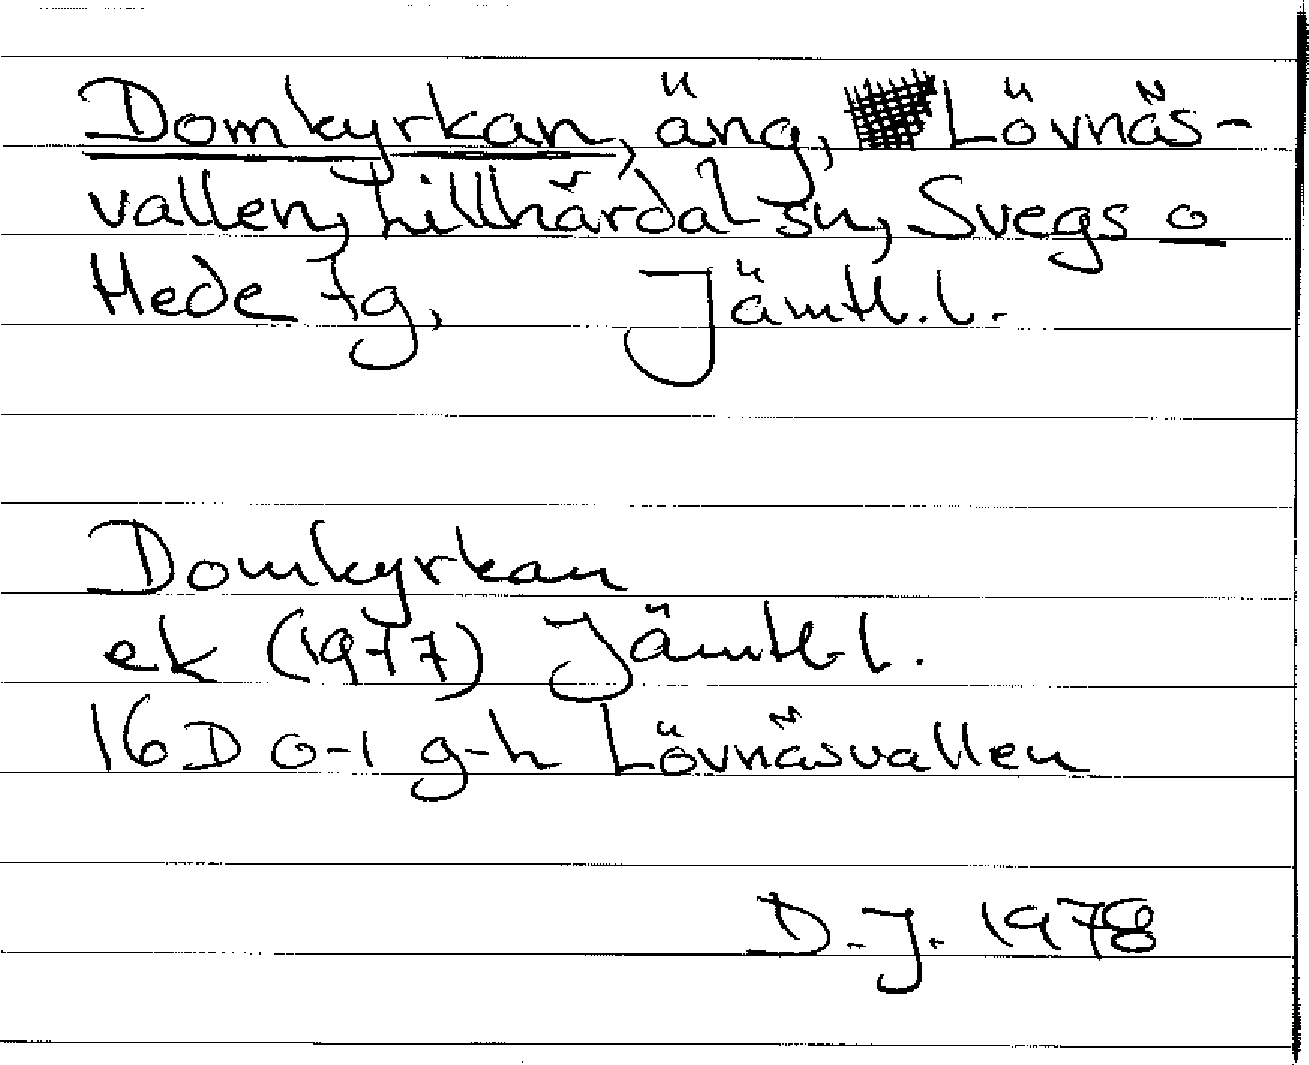 Domkyrkan, äng, Lövnäs-
vallen, Lillhärdal sn, Svegs o
Hede tg, Jämtl. l.
Domkyrkan
ek (1977) Jämtl. l.
16D 0-1 g-h Lövnäsvallen
D.J. 1978